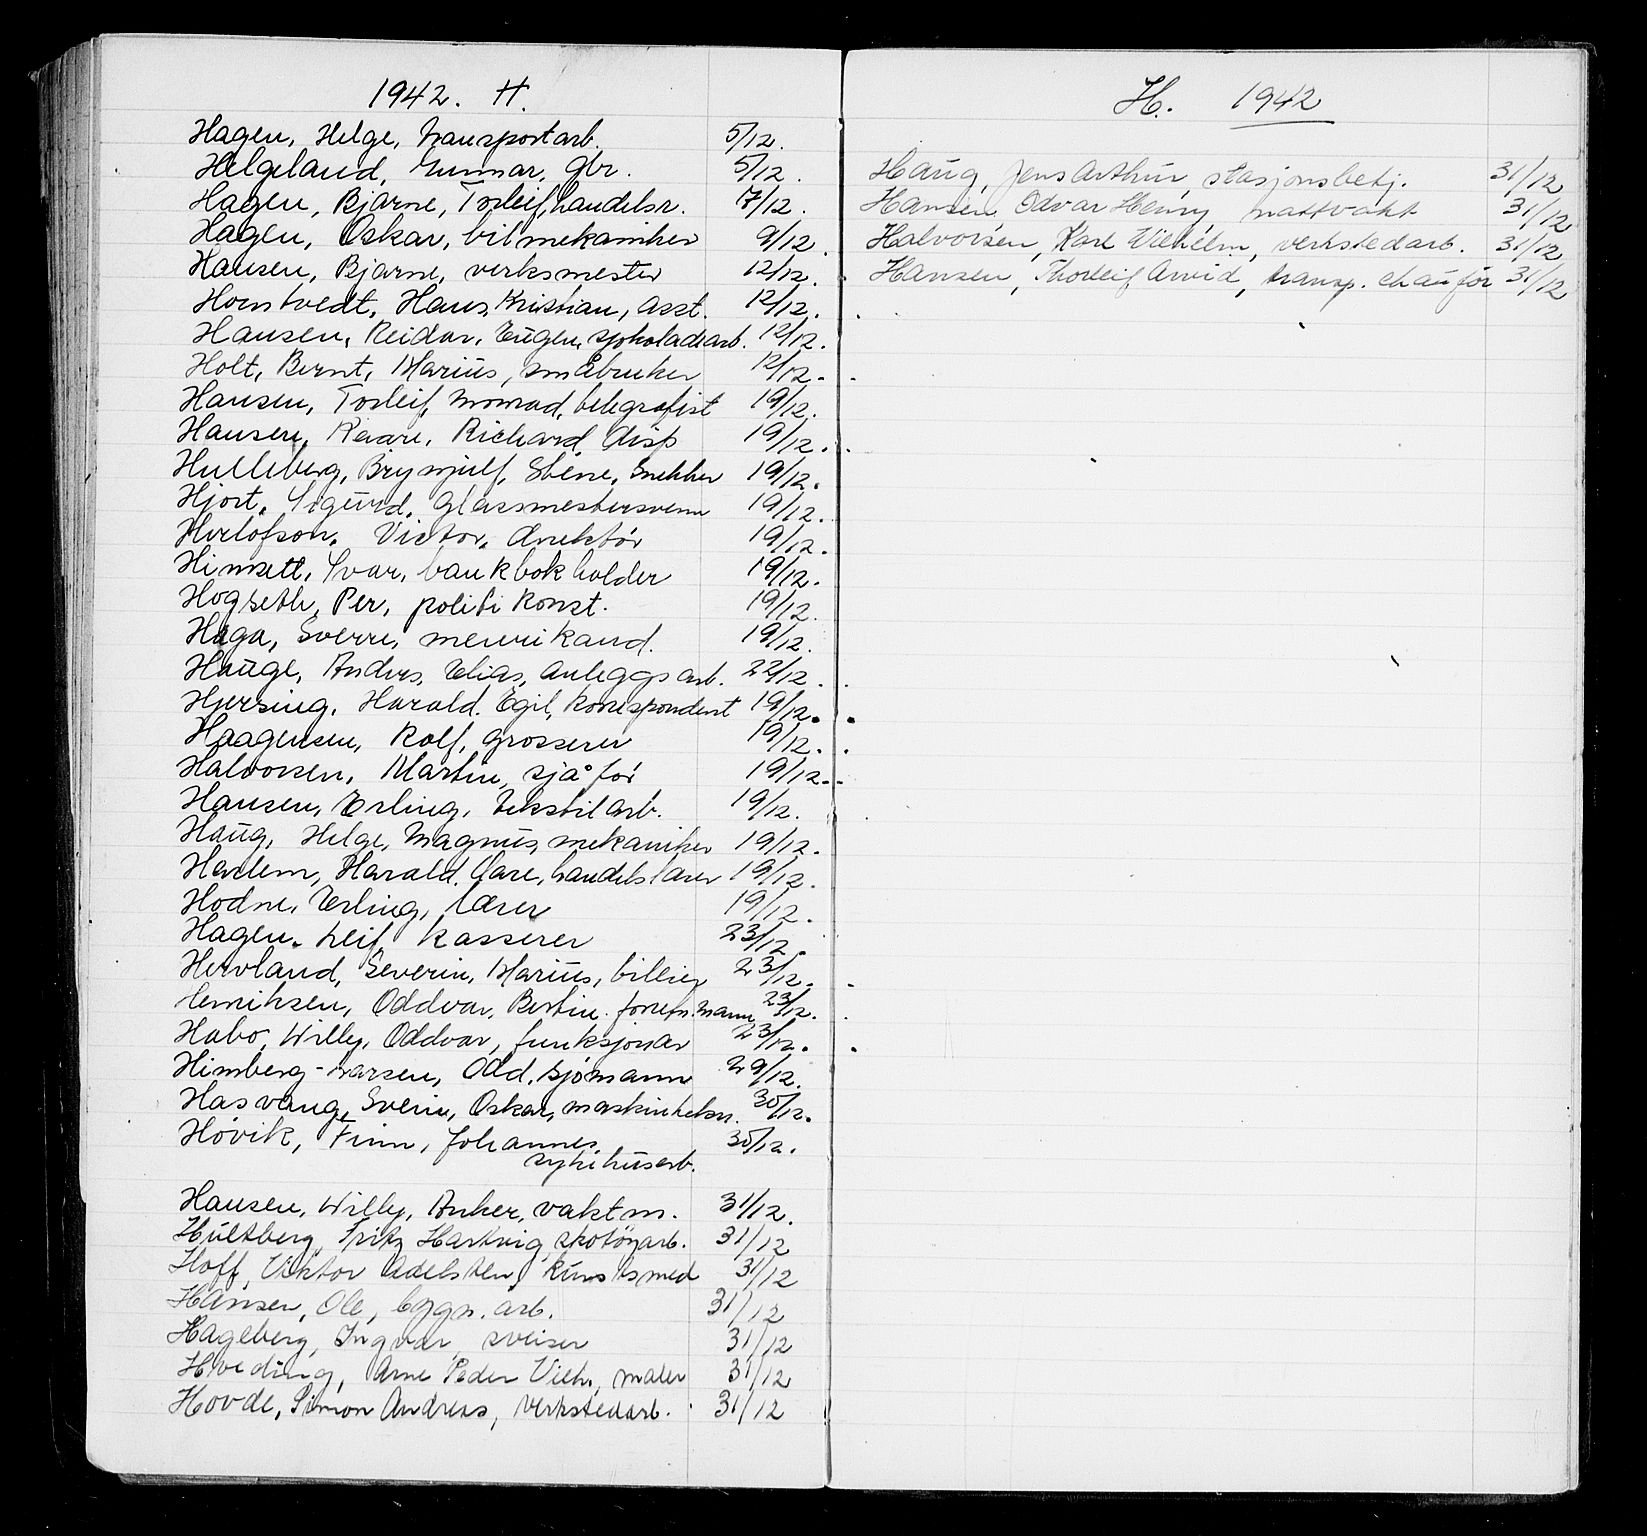 1942. H.
Hagen, Helge, transportarb. 5/12.
Helgeland, Gunnar, gbr. 5/12.
Hagen, Bjarne, Torleif, handelsr. 7/12.
Hagen, Oskar, bilmekaniker 9/12.
Hansen, Bjarne, verksmester 12/12.
Horntvedt, Hans, Kristian, asst. 12/12.
Hansen, Reidar, Eugen, sjokoladearb. 12/12.
Holt, Bernt, Marius, småbruker 12/12.
Hansen, Torleif, Monrad, telegrafist 19/12.
Hansen, Kaare, Richard, disp 19/12.
Hulleberg, Brynjulf, Stene, snekker 19/12.
Hjort, Sigurd, Glassmestersvenn 19/12.
Herlofson, Victor, direktør 19/12.
Ivar, bankbokholder 19/12.
Hogseth, Per, politi konst. 19/12.
Haga, Sverre, meierikand. 19/12.
Hauge, Anders, Elias, anleggsarb. 22/12.
Hjersing, Harald. Egil, korrespondent 19/12.
Haagensen, Rolf, grosserer 19/12.
Halvorsen, Martin, sjåfør 19/12.
Hansen, Erling, tekstilarb. 19/12.
Haug, Helge, Magnus, mekaniker 19/12.
Harlem, Harald, Aare, handelslærer 19/12.
Hodne, Erling, lærer 19/12.
Hagen, Leif, kasserer 23/12.
Hervland, Severin, Marius, billeier 23/12.
Henriksen, Oddvar, Bertin. forretn.mann 23/12.
Habo, Willy, Oddvar, funksjonær 23/12.
Himberg-Larsen, Odd, sjømann 29/12.
Hasvang, Svein, Oskar, 30/12.
Høvik, Finn, Johannes, 30/12.
sykehusarb.
Hansen, Willy, Anker, vaktm. 31/12.
Hultberg, Fritz Hartvig, skotøyarb. 31/12
Hoff, Viktor Adelsten, kunstsmed 31/12
Hansen, Ole, bygn. arb. 31/12
Hageberg, Ingvar, sveiser 31/12
Hveding, Arne Peder Vilh., maler 31/12
Hovde, Simon Andreas, verkstedarb. 31/12
H. 1942
Haug, Jens Arthur, stasjonsbetj. 31/12
Hansen, Odvar Henry nattvakt 31/12
Halvorsen, Karl Vilhelm, verkstedarb. 31/12
Hansen, Thorleif Arvid, transp. chauför 31/12